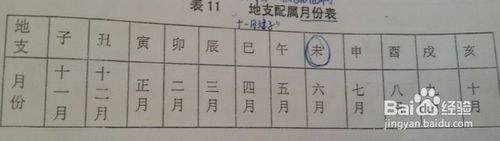 表11 地支配属月份表
"十一月建子"
地支 子 丑 寅 卯 辰 巳 午 未 申 酉 戌 亥
月份 十一月 十二月 正月 二月 三月 四月 五月 六月 七月 八月 九月 十月
Baidu经验
jingyan.baidu.com